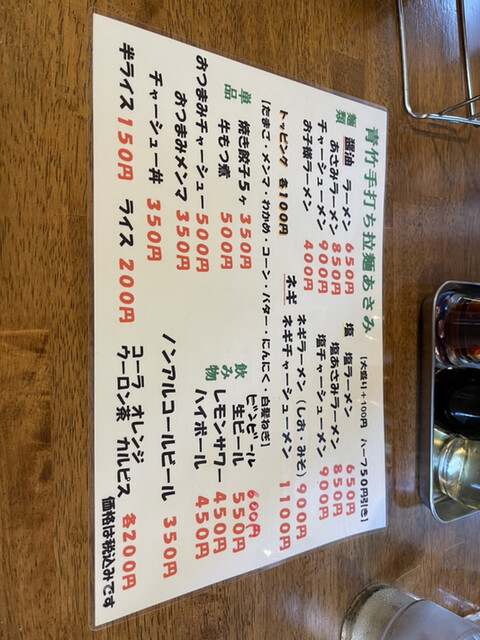 青竹手打ち拉麺あさみ
【大盛り+100円 ハーフ50円引き】
麺類
醤油 ラーメン 650円
あさみラーメン 850円
チャーシューメン 900円
お子様ラーメン 400円
塩 塩ラーメン 650円
塩あさみラーメン 850円
塩チャーシューメン 900円
ネギ ネギラーメン(しお・みそ)900円
ネギチャーシューメン 1100円
トッピング 各100円
【たまご・メンマ・わかめ・コーン・バター・にんにく・白髪ねぎ】
単品
焼き餃子5ヶ 350円
牛もつ煮 500円
おつまみチャーシュー 500円
おつまみメンマ 350円
チャーシュー丼 350円
半ライス 150円 ライス 200円
飲み物
ビンビール 600円
生ビール 550円
レモンサワー 450円
ハイボール 450円
ノンアルコールビール 350円
コーラ オレンジ
ウーロン茶 カルピス 各200円
価格は税込みです